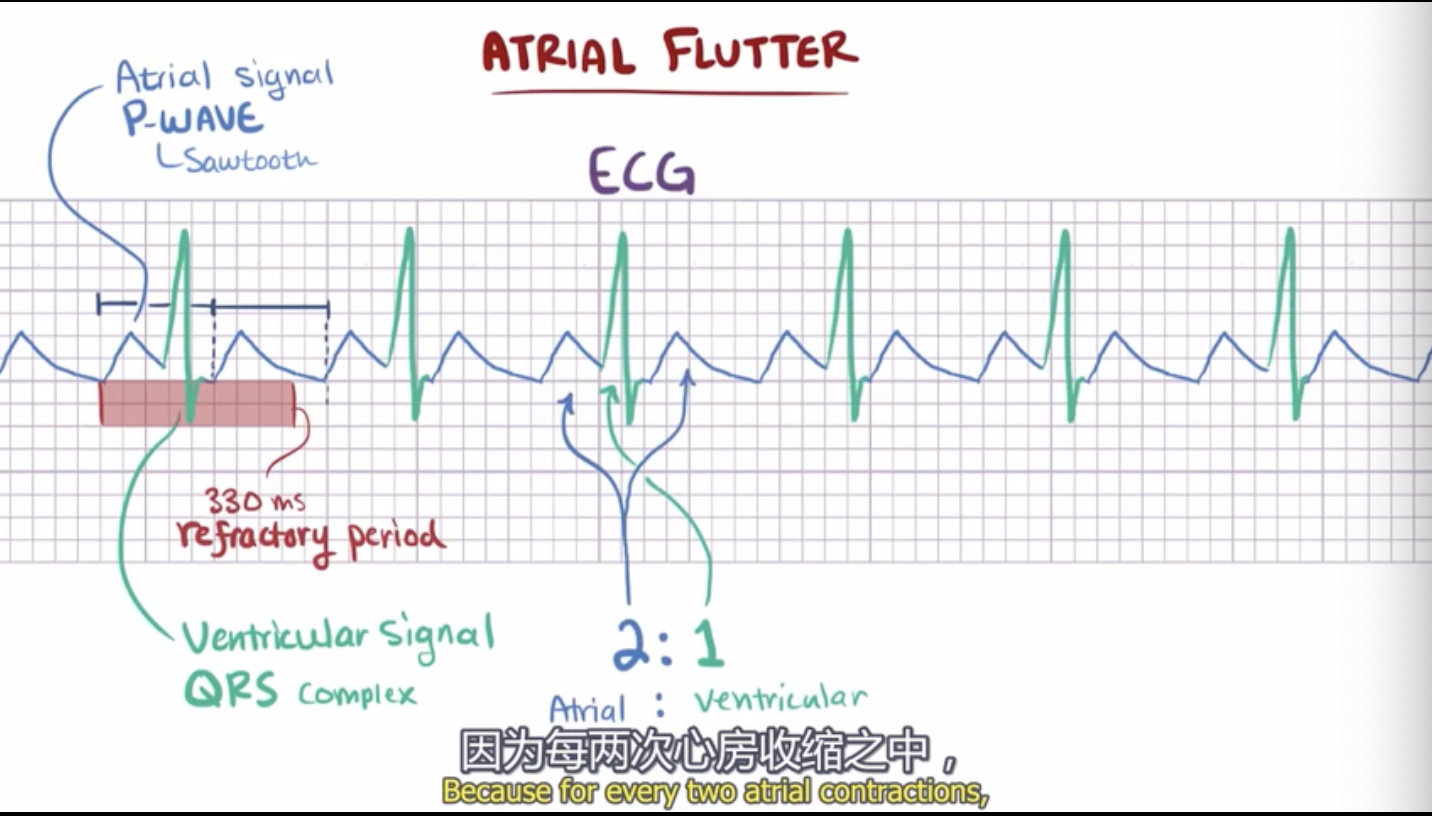 ATRIAL FLUTTER
Atrial signal
P-WAVE
Sawtooth
ECG
330 ms
refractory period
Ventricular Signal
QRS complex
2:1
Atrial : Ventricular
因为每两次心房收缩之中，
Because for every two atrial contractions,